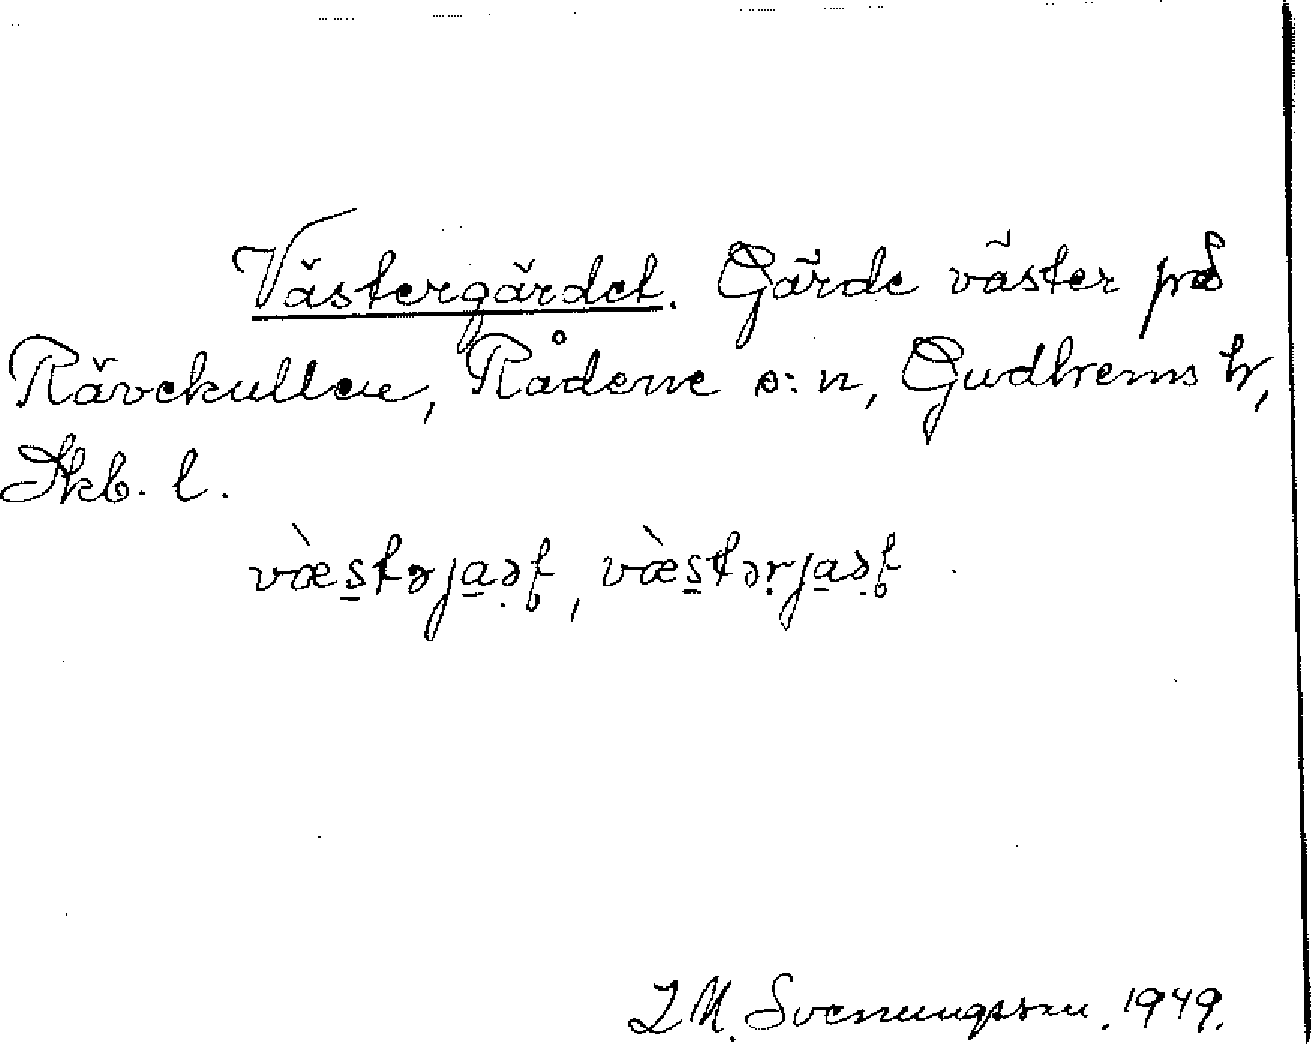 Västergärdet. Gärde väster på
Rävekullen, Rådene s:n, Gudhems h,
Skb. l.
væ̀s̱tərja̱ṣt, væ̀s̱təṛja̱ṣt
I.M. Svenungsson. 1949.